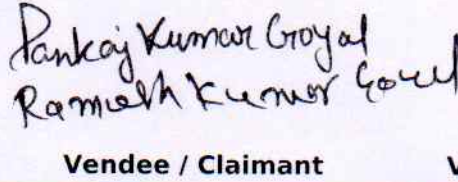 Pankaj Kumar Goyal
Ramesh Kumar Goyal
Vendee / Claimant V